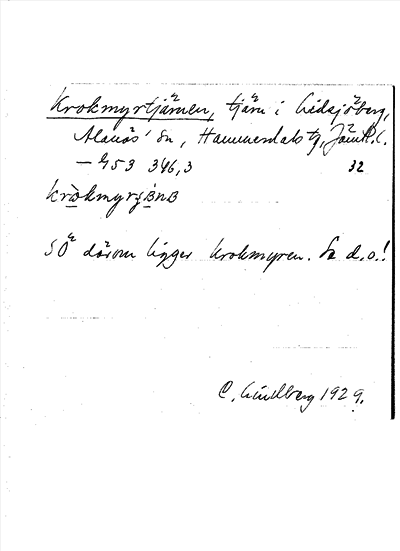 Krokmyrtjärnen, tjärn i Lidsjöberg,
Alanäs' sn, Hammerdals tg, Jämtl. l.
— 453 346,3 32
kròkmyrʒBnB
SÖ därom ligger Krokmyren. Se d.o.!
C. Lindberg 1929.